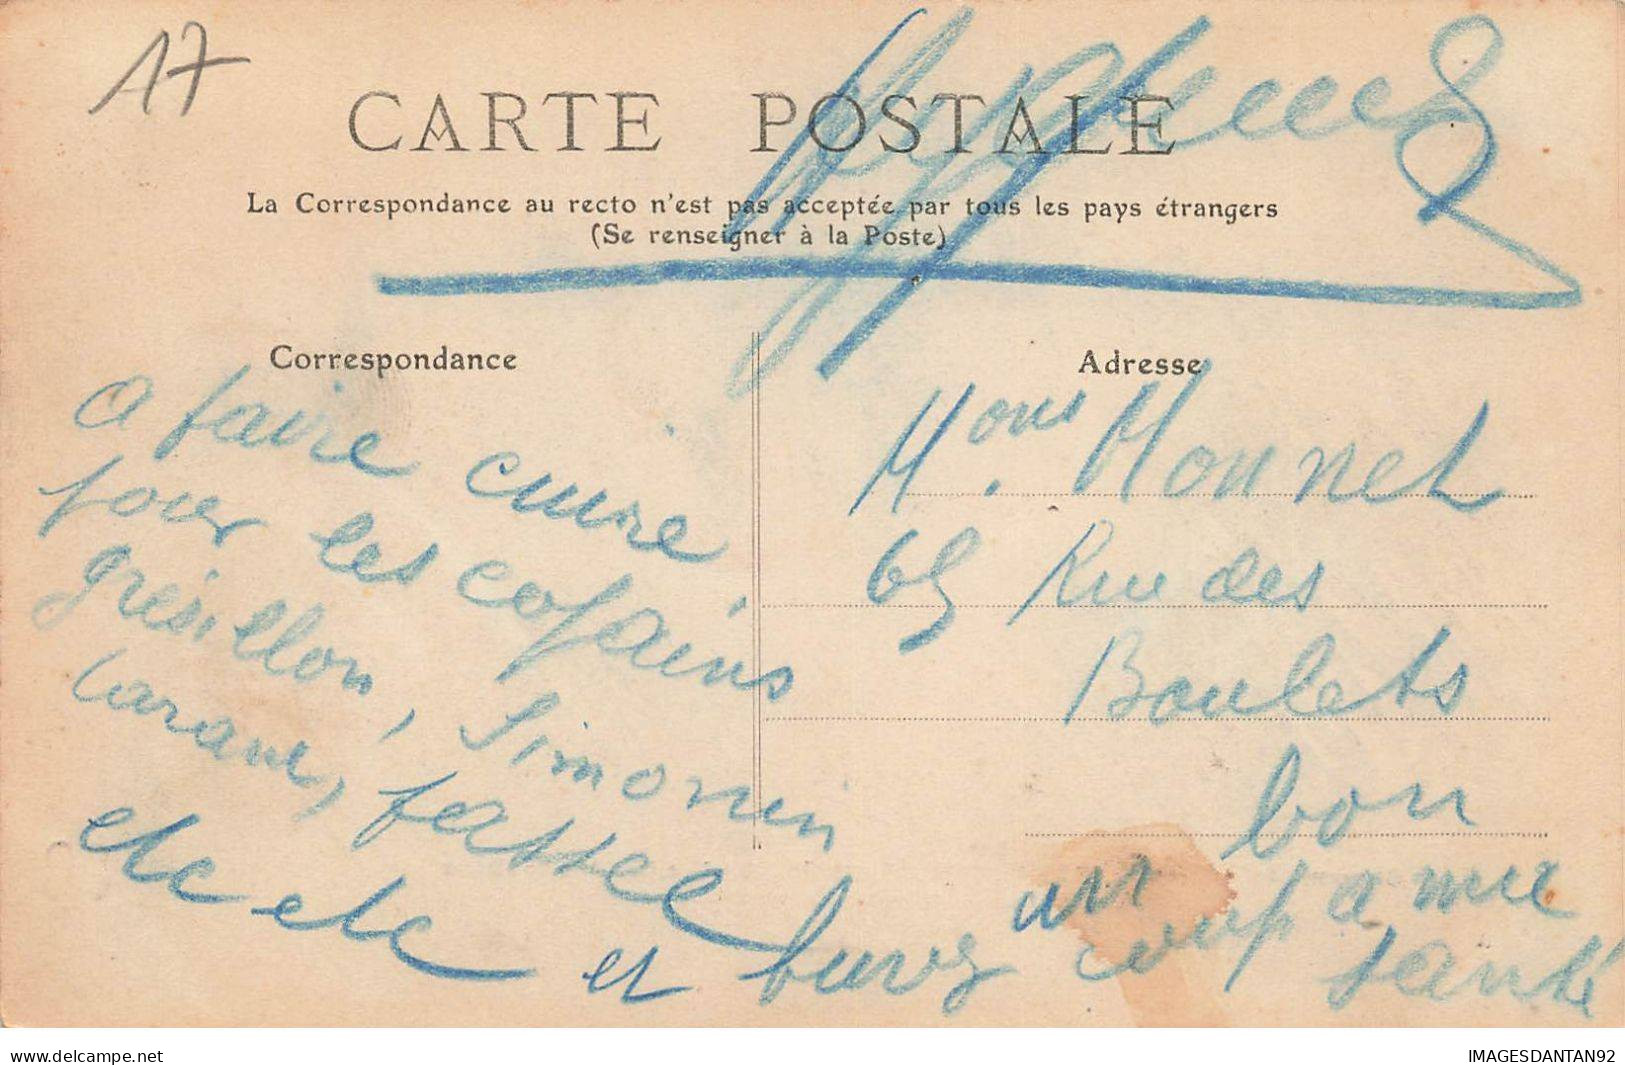 17
CARTE POSTALE
La Correspondance au recto n'est pas acceptée par tous les pays étrangers
(Se renseigner à la Poste)
Correspondance
a faire cuire
pour les copains
grésillon, Simonin
etc etc et buvez
un bon
coup a me
santé
Adresse
Mons. Monnet
69 Rue des
Boulets
delcampe.net
IMAGESDANTAN92